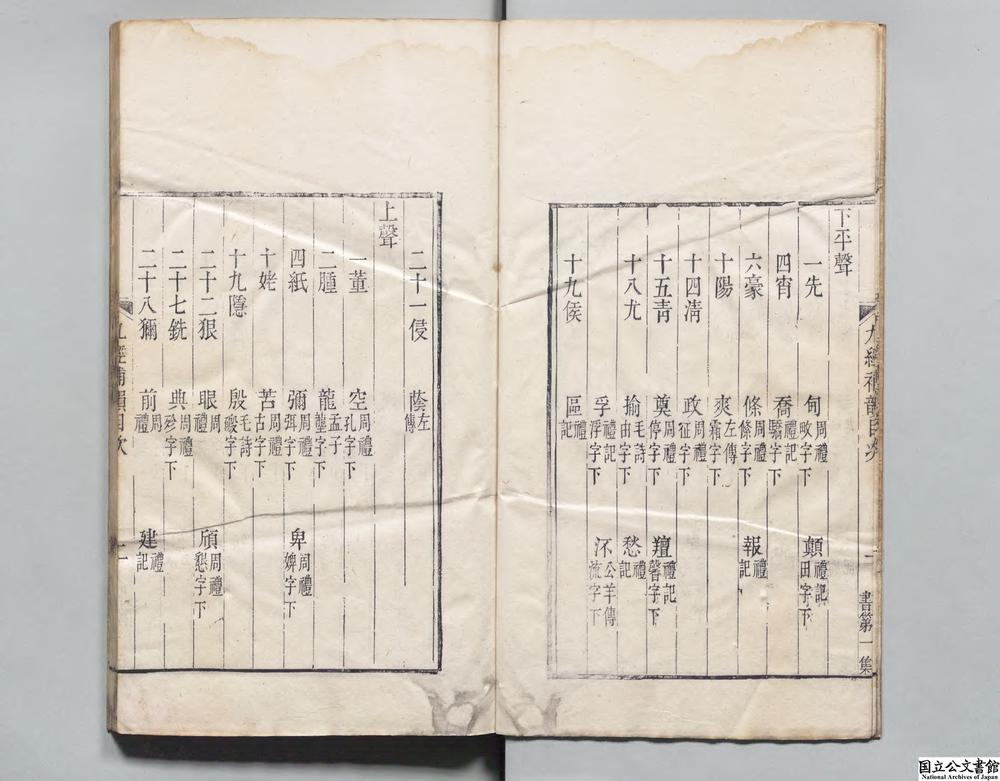 下平聲
一先 甸周禮畋字下 顛禮記田字下
四宵 喬禮記驕字下
六豪 條周禮絛字下 報禮記
十陽 爽左傳霜字下
十四淸 政周禮征字下
十五青 奠周禮停字下 羶禮記馨字下
十八尤 揄毛詩由字下 愁禮記
孚禮記浮字下 不公羊傳流字下
十九侯 區禮記
九經補韻目次 一 書第一集
二十一侵 蔭左傳
上聲
一董 空周禮孔字下
二腫 龍孟子壟字下
四紙 彌周禮弭字下 卑周禮婢字下
十姥 苦周禮古字下
十九隱 殷毛詩磤字下
二十二狠 眼周禮 頎周禮懇字下
二十七銑 典周禮殄字下
二十八獮 前周禮 建禮記
九經補韻目次 二
国立公文書館
National Archives of Japan